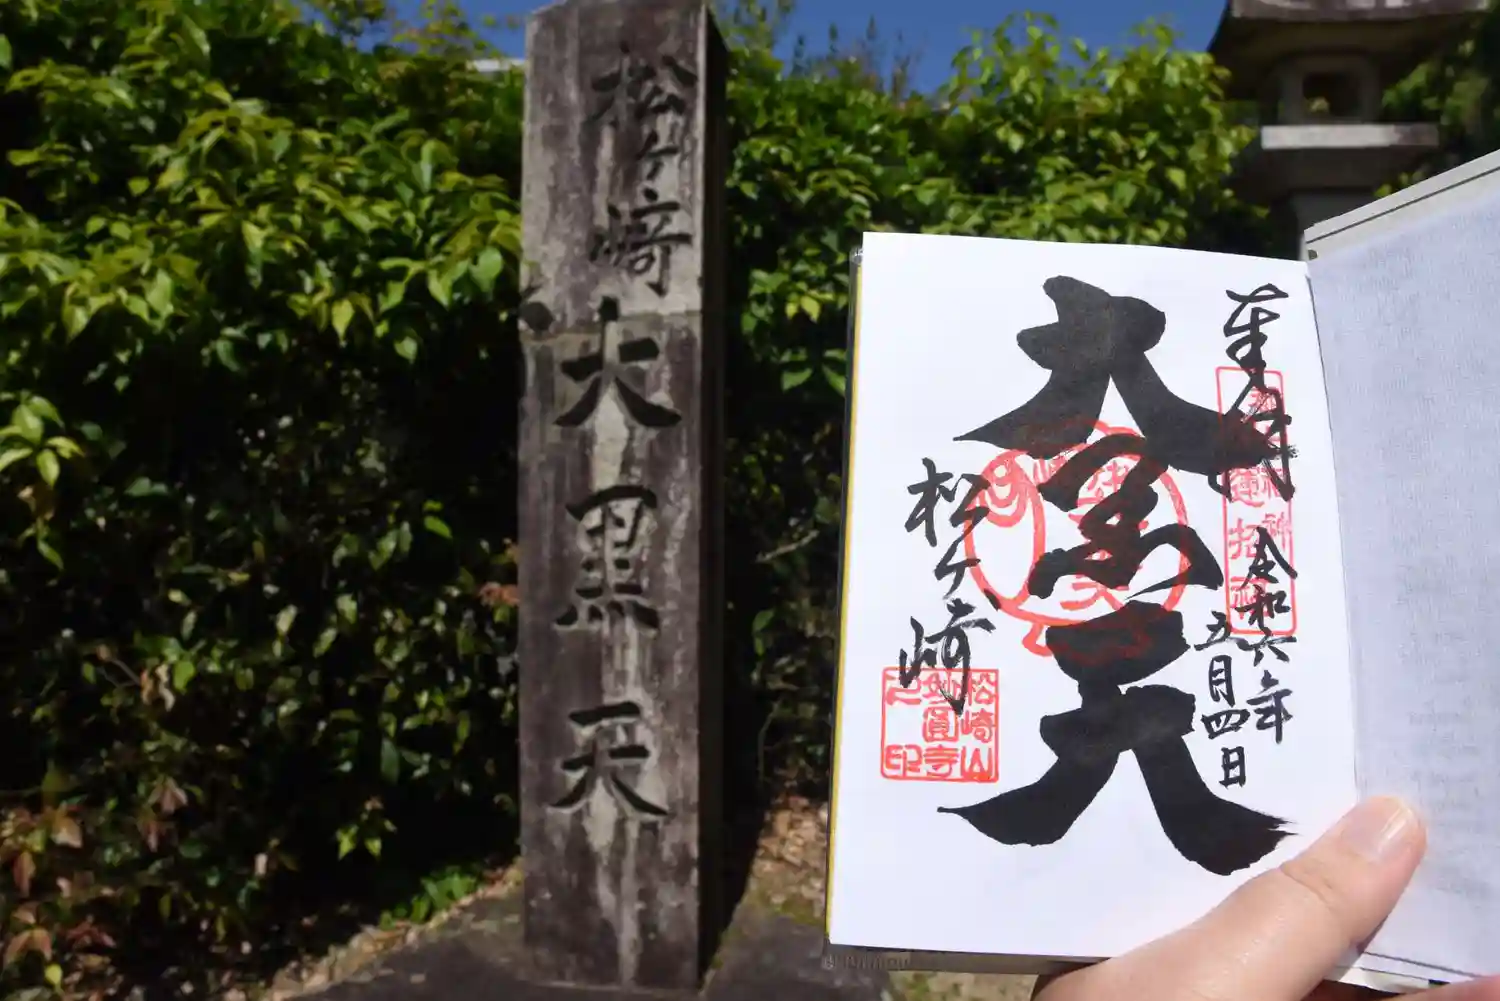 松ヶ崎大黒天
奉拝
令和六年
五月四日
大黒天
松ヶ崎
松崎山
妙圓寺
之印